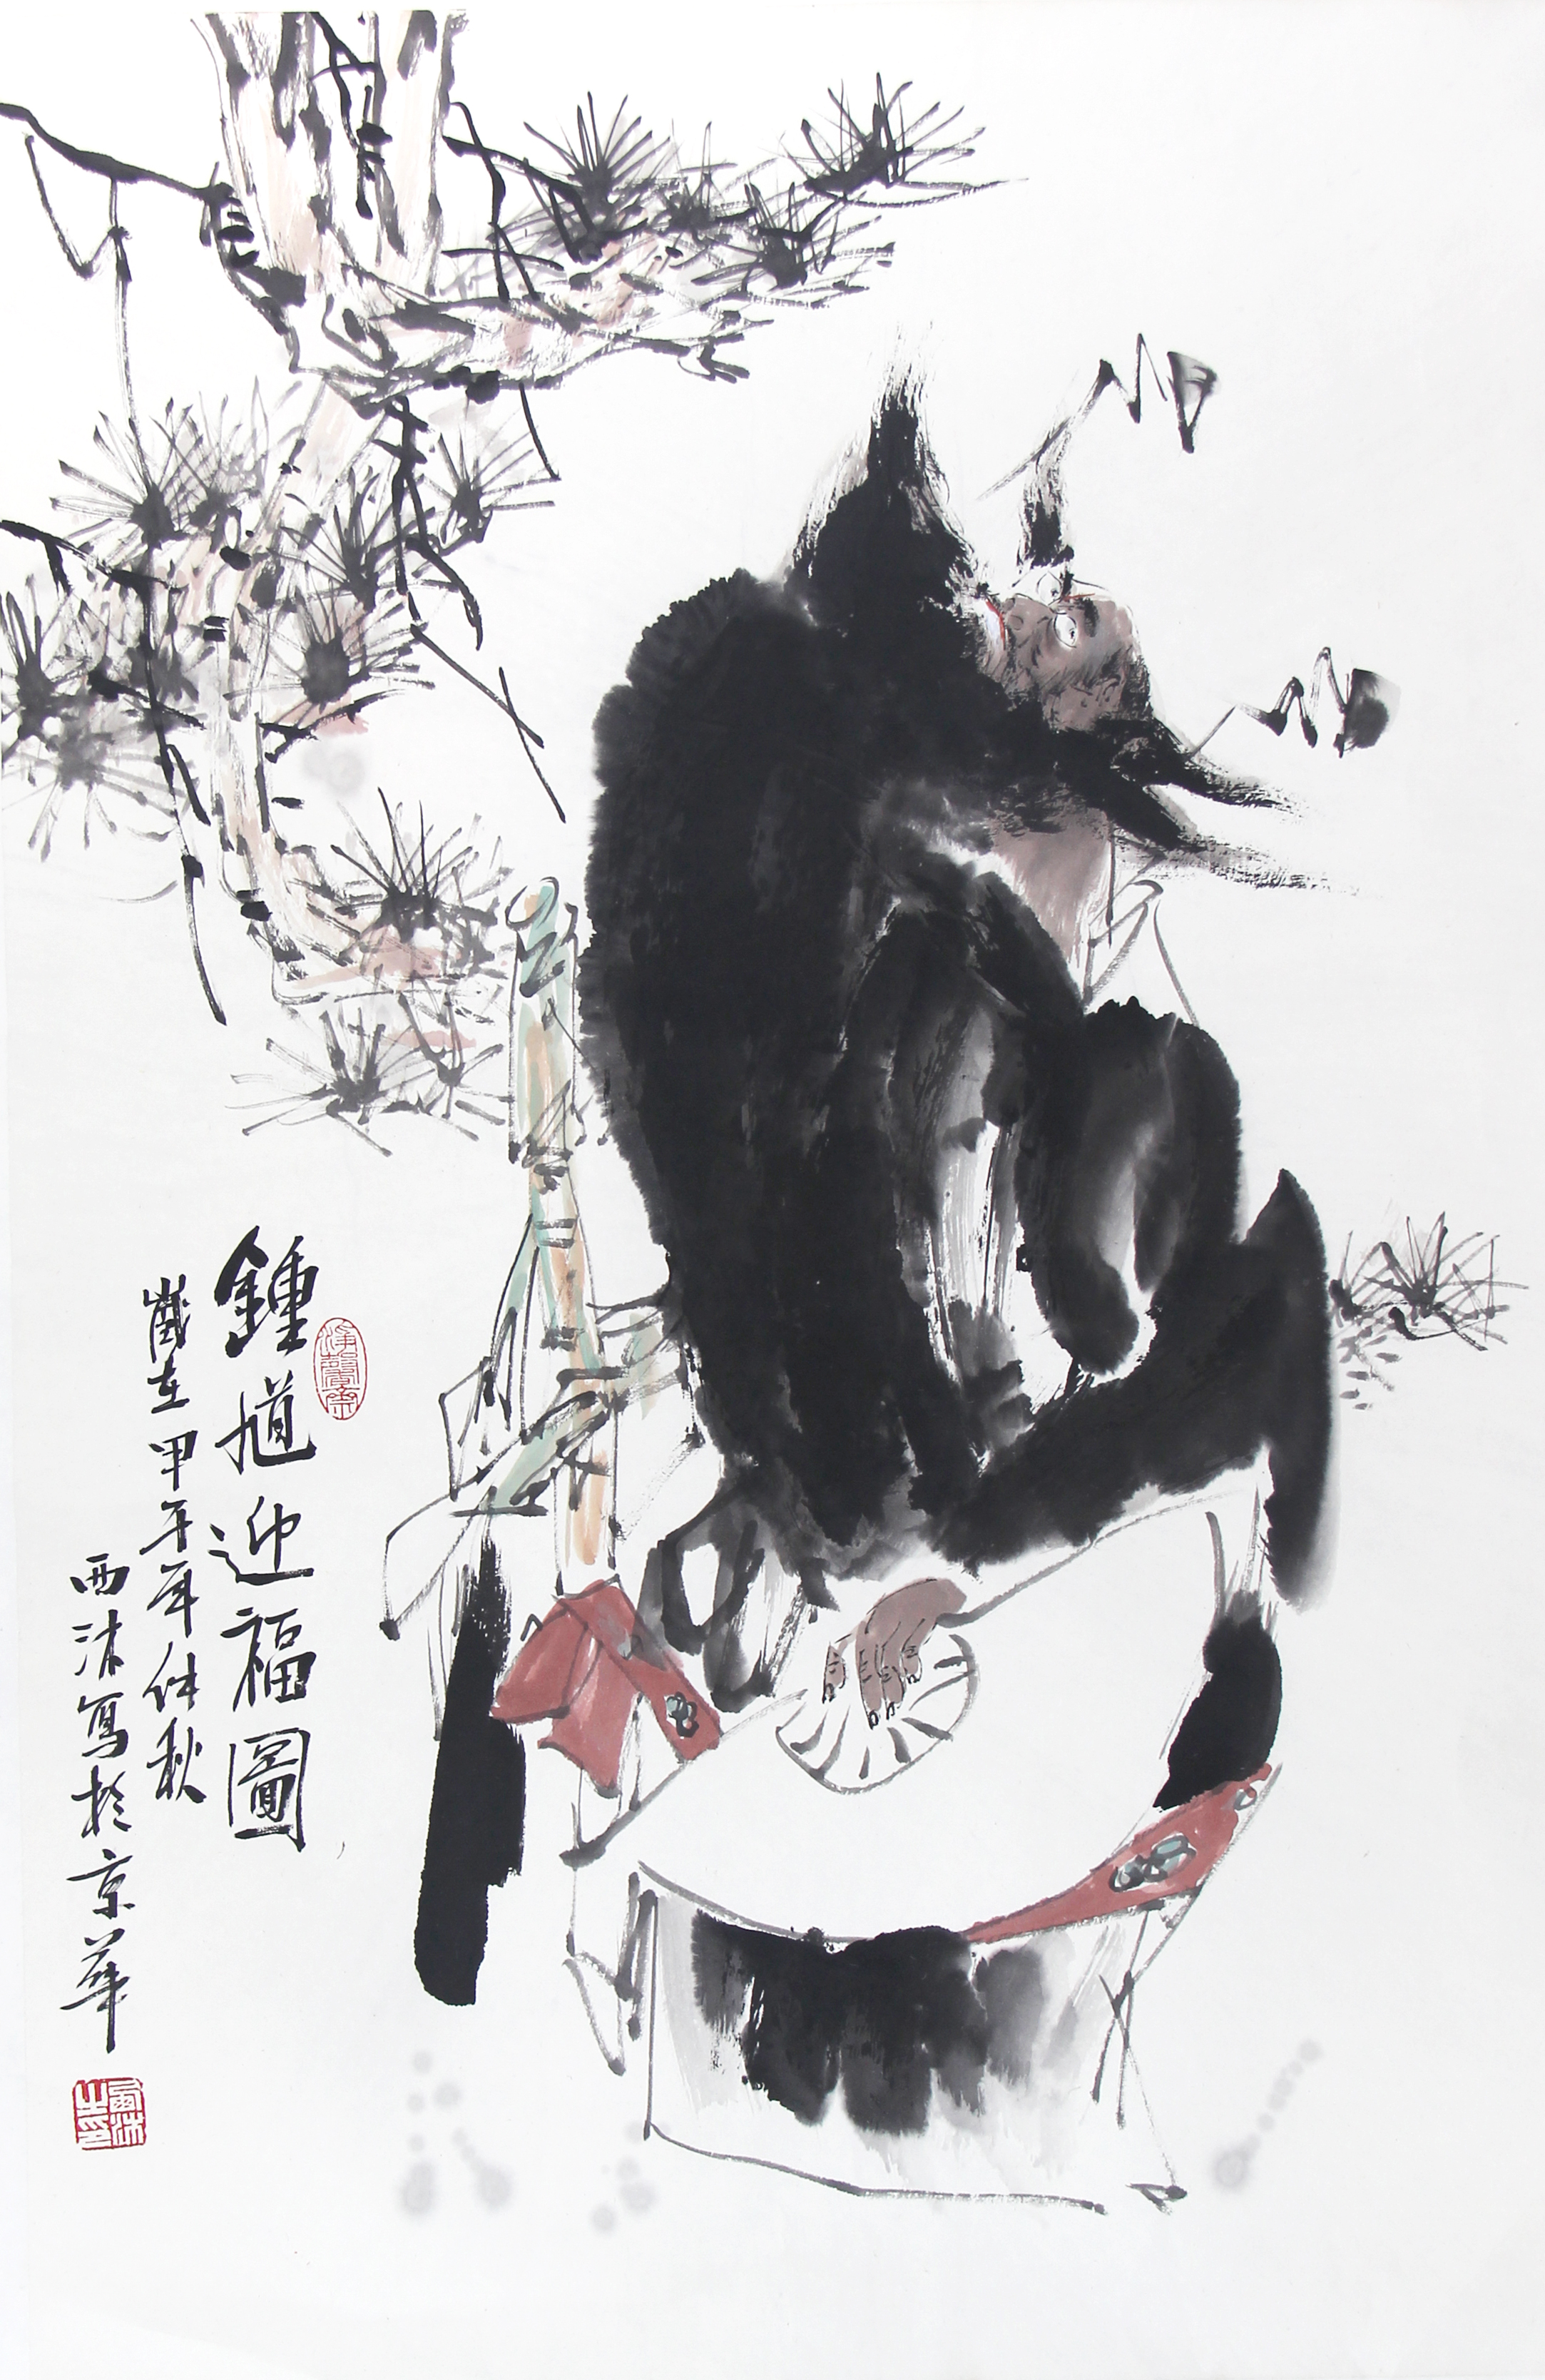 鍾馗迎福圖
歲在甲午年仲秋
西沐寫於京華
西沐之印